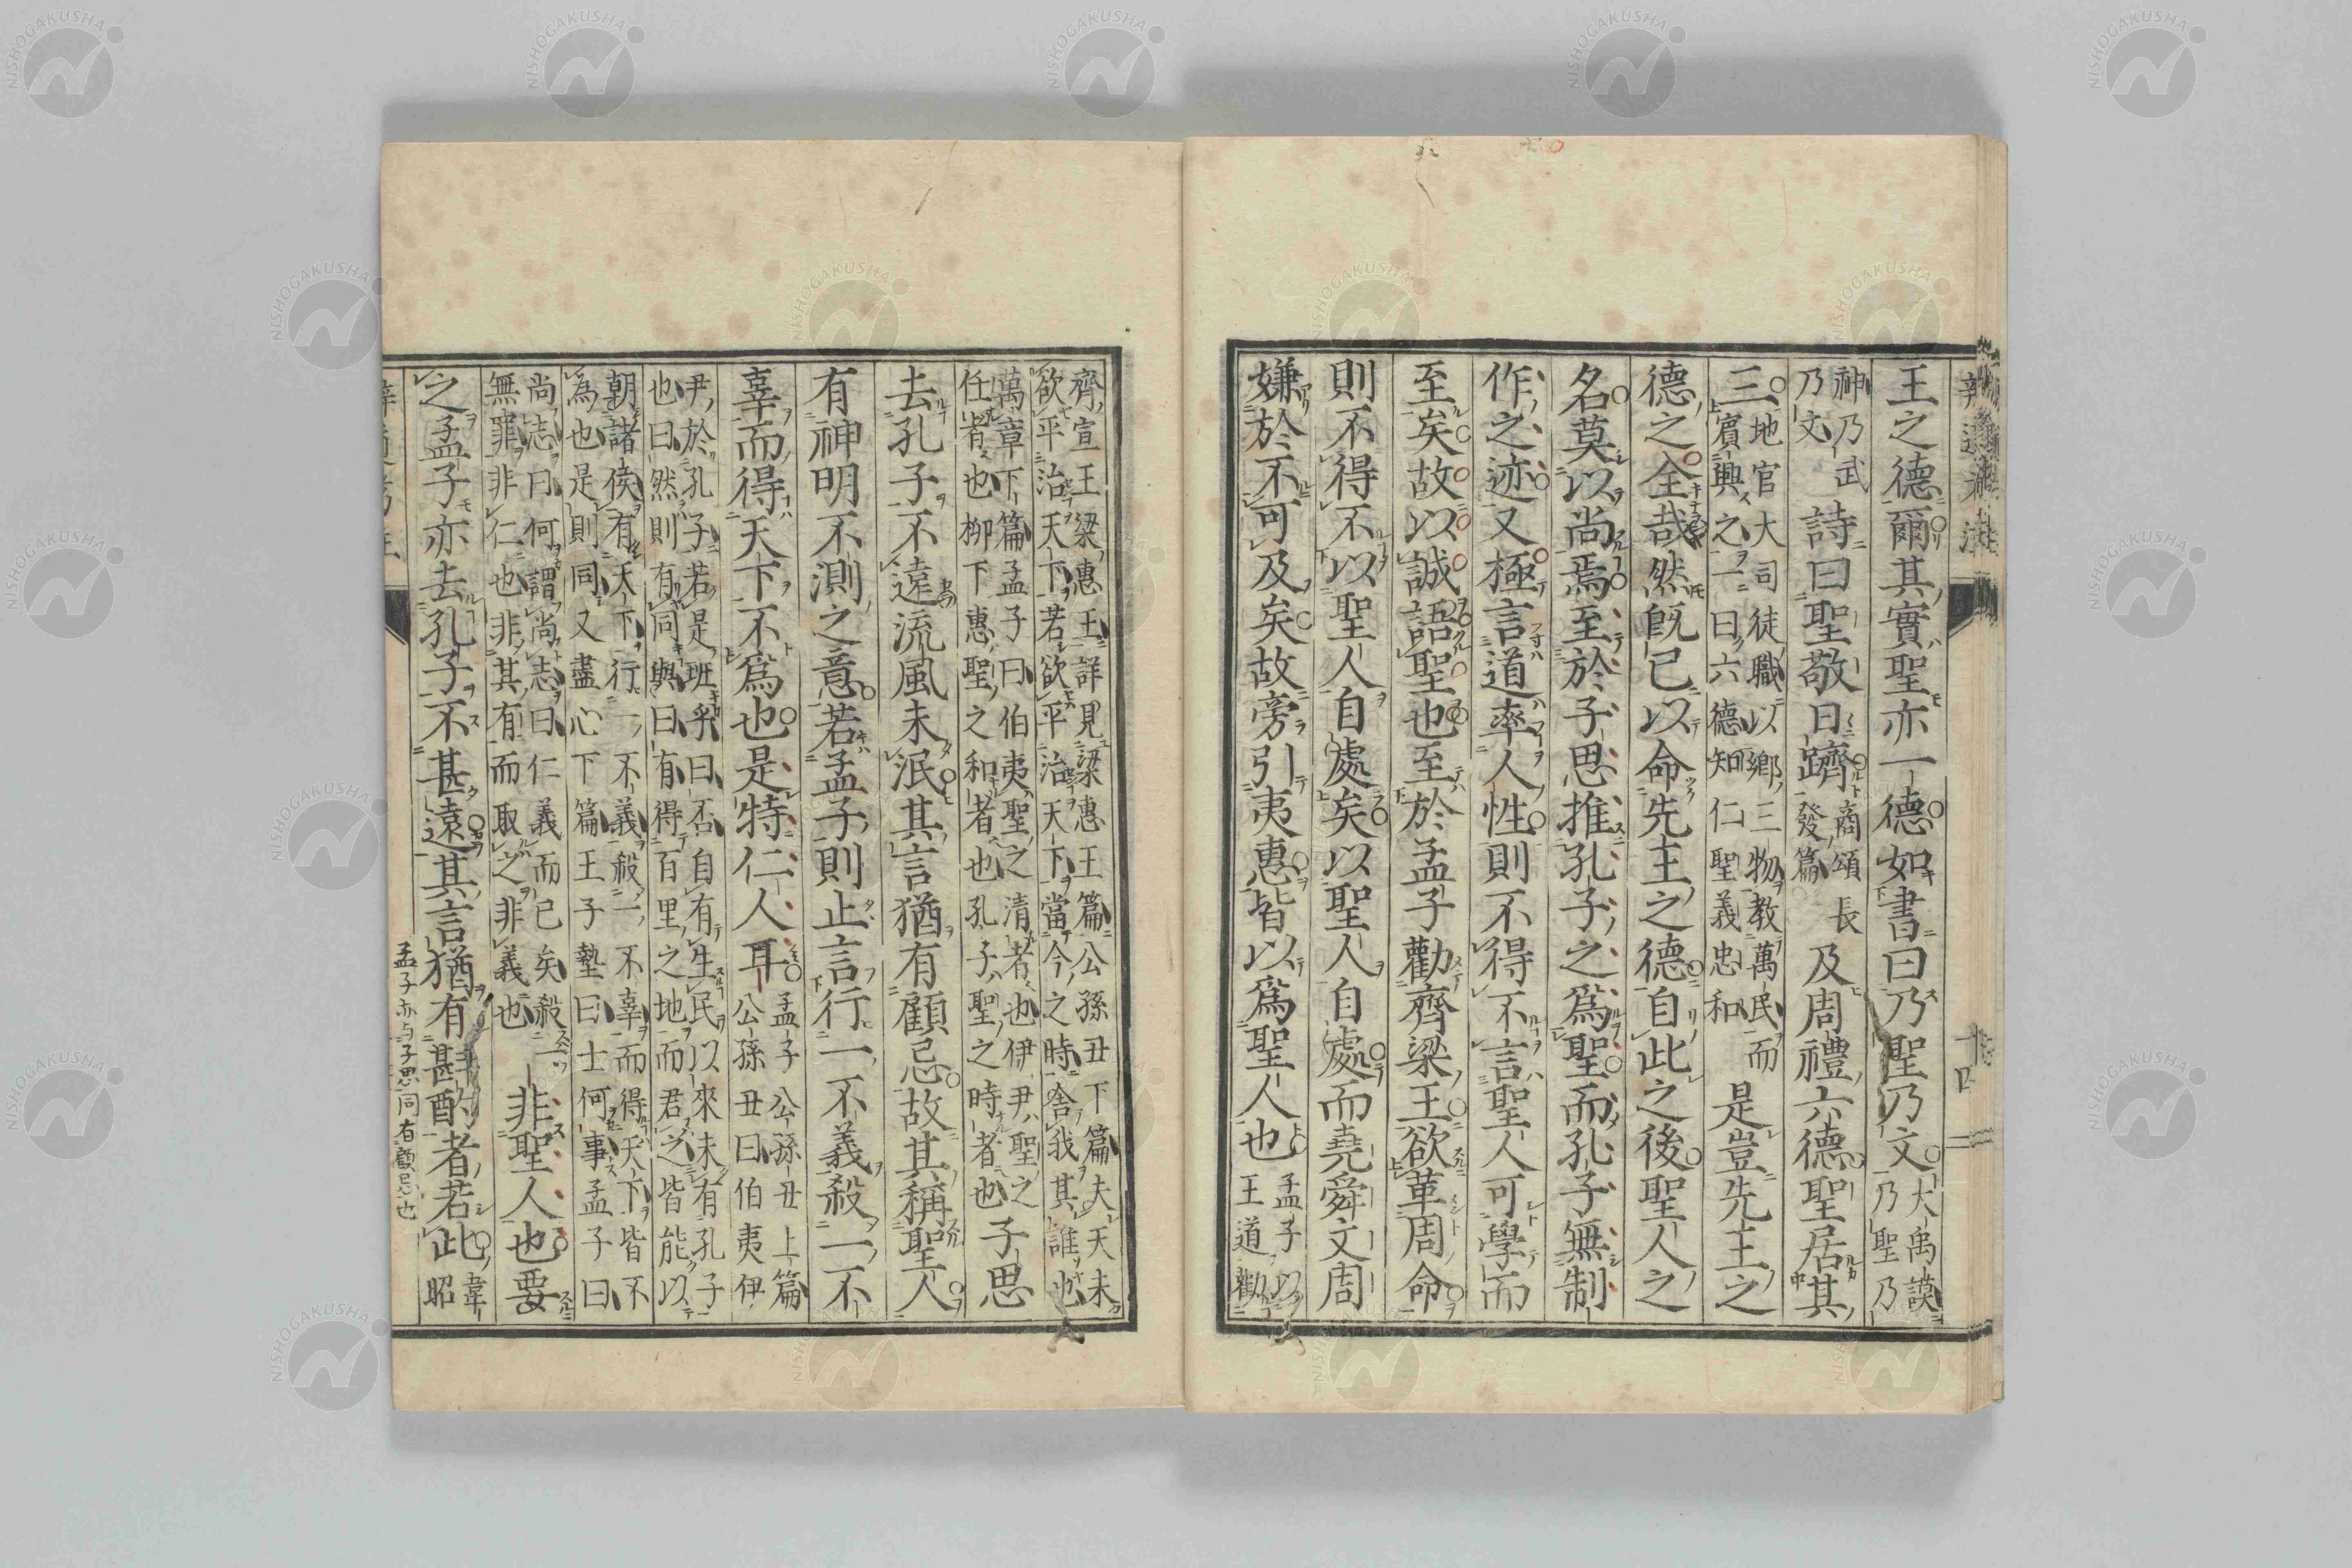 王之德爾其實聖亦一德如書曰乃聖乃文大禹謨乃聖乃
神乃武乃文詩曰聖敬日躋商頌長發篇及周禮六德聖居其
三地官大司徒職以鄉三物教萬民而賓興之一曰六德知仁聖義忠和是豈先王之
德之全哉然旣已以命先王之德自此之後聖人之
名莫以尚焉至於子思推孔子之爲聖而孔子無制
作之迹又極言道率人性則不得不言聖人可學而
至矣故以誠語聖也至於孟子勸齊梁王欲革周命
則不得不以聖人自處矣以聖人自處而堯舜文周
嫌於不可及矣故旁引夷惠皆以爲聖人也孟子以王道勸
齊宣王梁惠王詳見梁惠王篇公孫丑下篇夫天未
欲平治天下若欲平治天下當今之時舍我其誰也
萬章下篇孟子曰伯夷聖之清者也伊尹聖之
任者也柳下惠聖之和者也孔子聖之時者也子思
去孔子不遠流風未泯其言猶有顧忌故其稱聖人
有神明不測之意若孟子則止言行一不義殺一不
辜而得天下不爲也是特仁人耳孟子公孫丑上篇公孫丑曰伯夷伊
尹於孔子若是班乎曰否自有生民以來未有孔子
也曰然則有同與曰有得百里之地而君之皆能以
朝諸侯有天下行一不義殺一不辜而得天下皆不
為也是則同又盡心下篇王子墊曰士何事孟子曰
尚志曰何謂尚志曰仁義而已矣殺一
無罪非仁也非其有而取之非義也非聖人也要
之孟子亦去孔子不甚遠其言猶有斟酌者若此韋昭
孟子亦与子思同有顧忌也
NISHOGAKUSHA